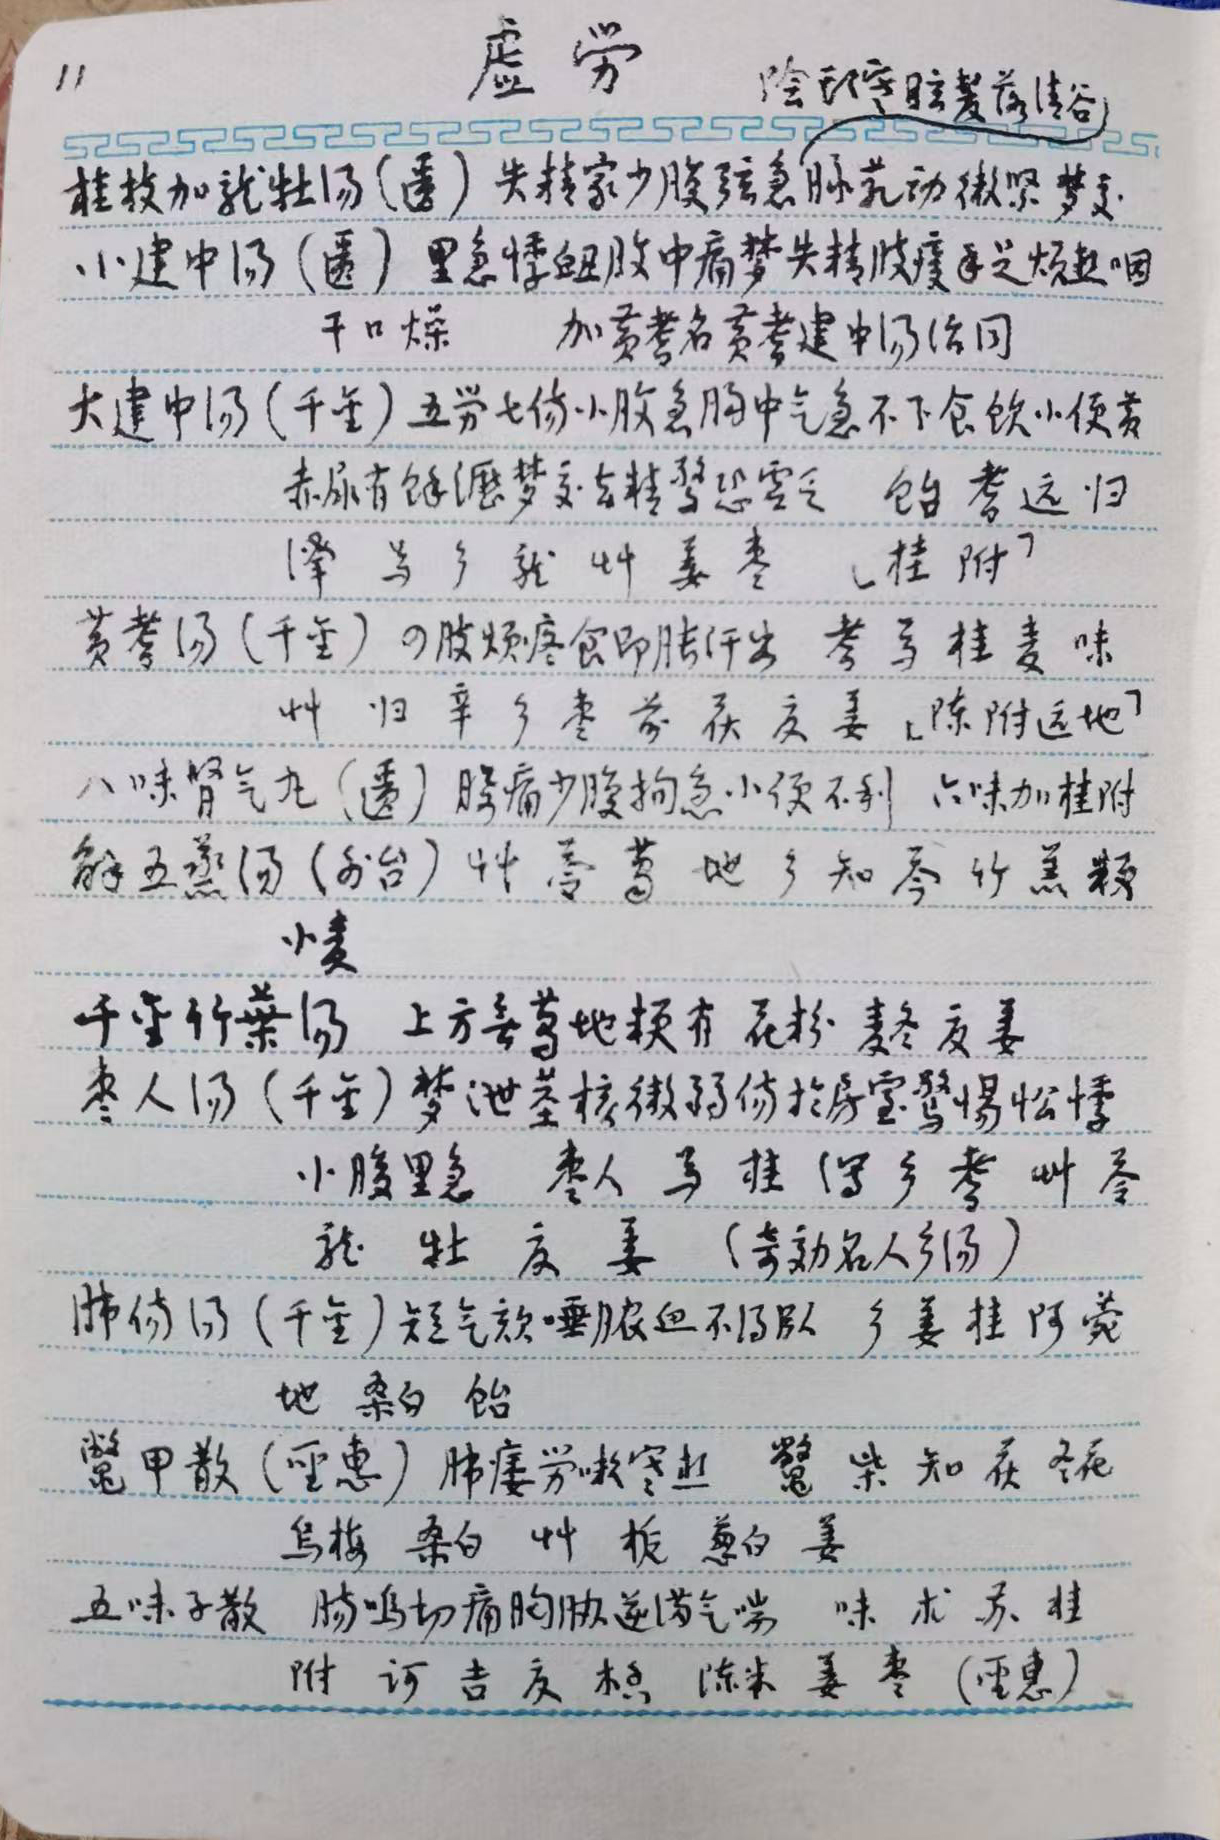 11
虚劳
陰头寒目玄髮落清谷
桂枝加龙牡汤(匮) 失精家少腹弦急脉芤动微紧梦交
小建中汤(匮) 里急悸衄腹中痛梦失精肢痠手足烦热咽
干口燥 加黄耆名黄耆建中汤治同
大建中汤(千金) 五劳七伤小腹急胸中气急不下食飲小便黄
赤尿有餘瀝梦交去精驚恐虚乏 飴 耆 远 归
泽 芍 龙 艸 姜 枣 「桂 附」
黄耆汤(千金) 四肢烦疼食即胀汗出 耆 芍 桂 麦 味
艸 归 辛 枣 前 茯 夜 姜 「陈附远地」
八味腎气丸(匮) 腰痛少腹拘急小便不利 六味加桂附
解五蒸汤(外台) 艸 苓 葛 地 知 芩 竹 羔 粳
小麦
千金竹葉汤 上方無葛地粳有 花粉 麦冬 夜 姜
枣人汤(千金) 梦泄茎核微弱伤於房室驚惕忪悸
小腹里急 枣人 芍 桂 得 耆 艸 苓
龙 牡 夜 姜 (奇効名人汤)
肺伤汤(千金) 短气欬唾脓血不得臥 姜 桂 阿 菀
地 桑白 飴
鱉甲散(聖惠) 肺痿劳嗽寒热 鱉 柴 知 茯 冬花
烏梅 桑白 艸 栀 葱白 姜
五味子散 肠鸣切痛胸脇逆满气喘 味 朮 苏 桂
附 诃 吉 夜 木香 陈米 姜 枣 (聖惠)